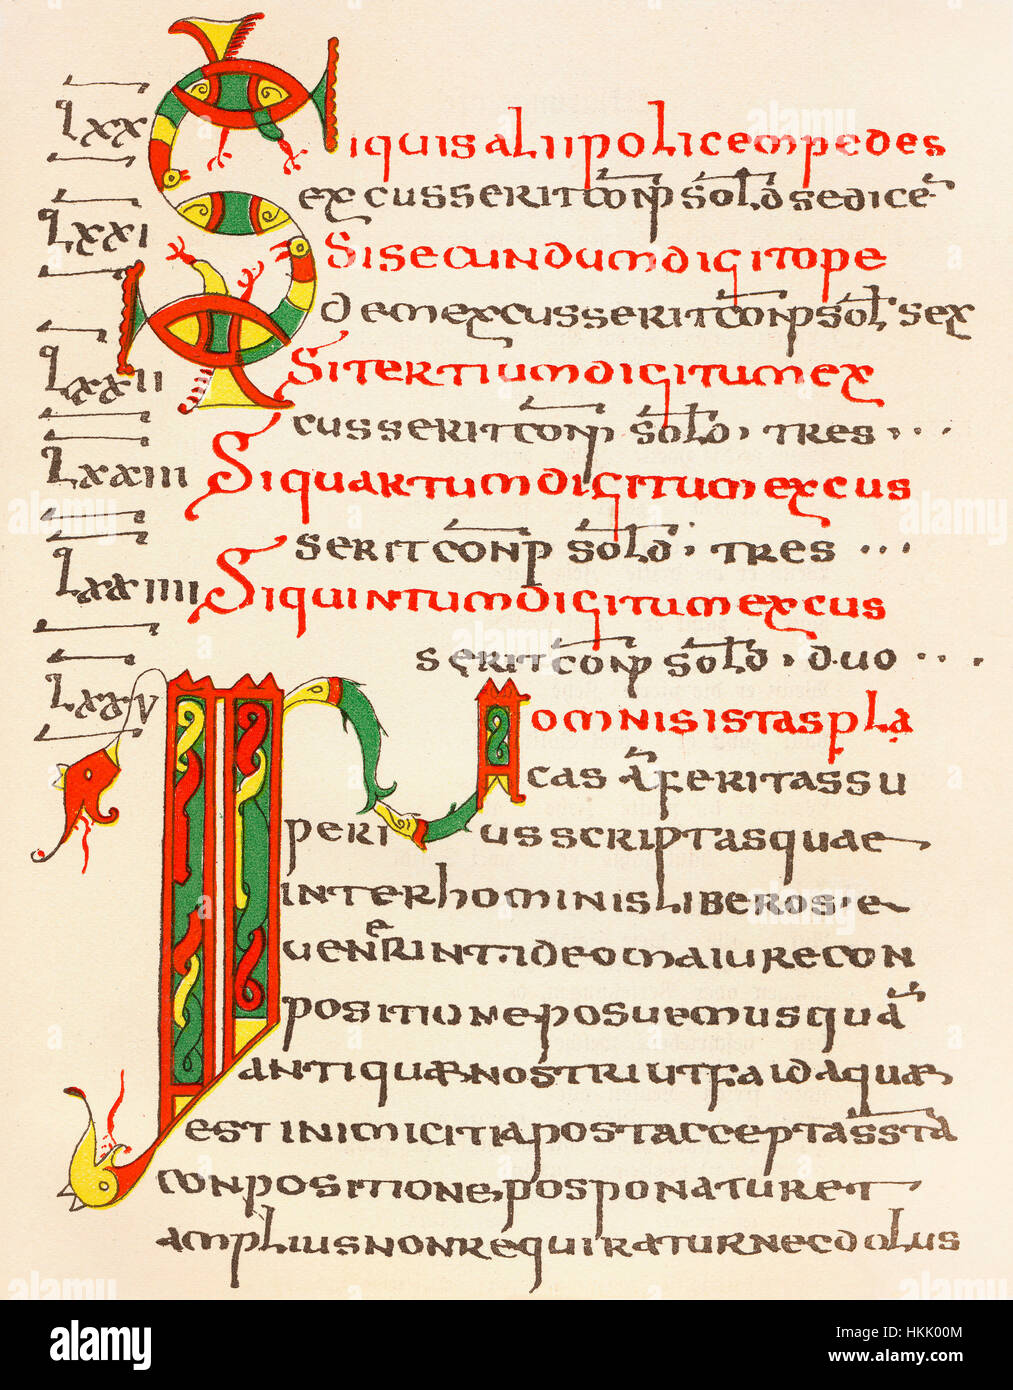 LXX Siquis alii policem pedes
excusserit conp sold sedice
LXXI Si secundum digito pe
dem excusserit conp sol sex
LXXII Si tertium digitum ex
cusserit conp sold · tres ···
LXXIII Si quartum digitum excus
serit conp sold · tres ···
LXXIIII Si quintum digitum excus
serit conp sold · duo ····
LXXV In omnis istas pla
cas feritas su
perius scriptas quae
inter hominis liberos · e
uenerint · ideo maiure con
positione posuemus qua
antiquae nostri ut faida quae
est inimicitia post accepta ssta
conpositione, posponatur et
amplius non requiratur nec dolus
alamy
Image ID: HKK00M
www.alamy.com